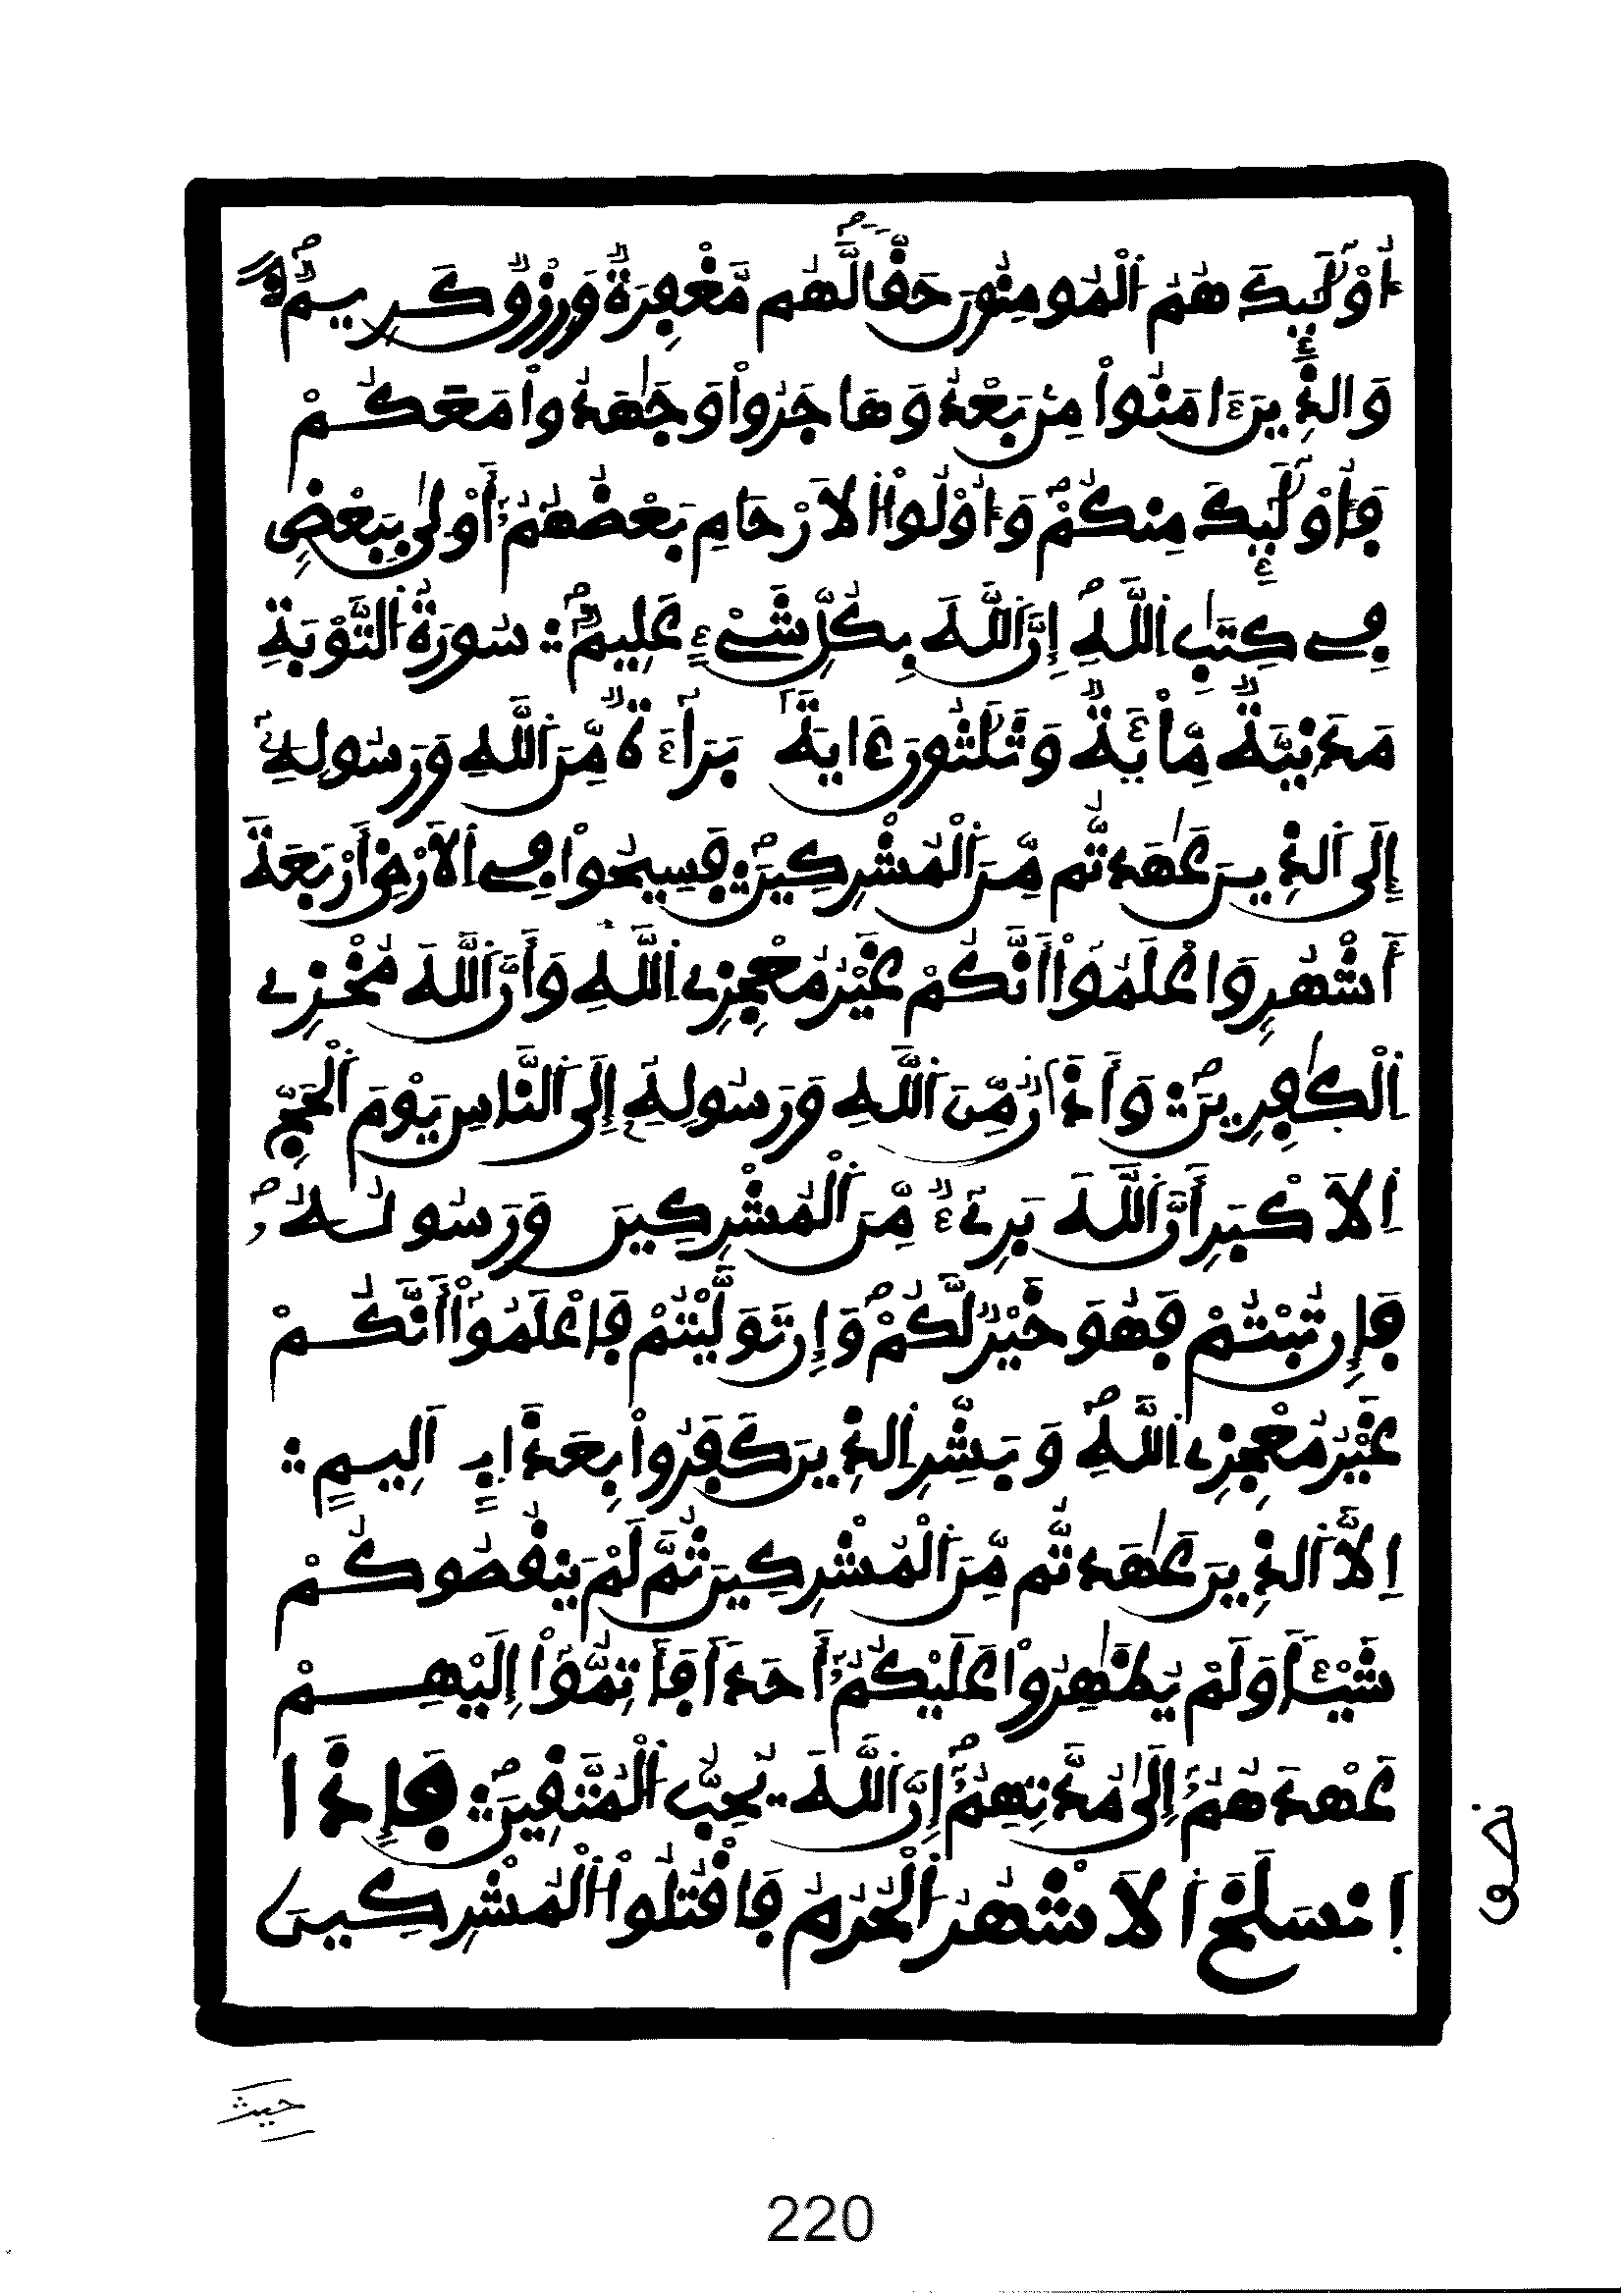 أُوْلَٰٓئِكَ هُمُ اُلْمُومِنُونَ حَقّاٗ لَّهُم مَّغْفِرَةٞ وَرِزْقٞ كَرِيمٞ
وَالذِينَ ءَامَنُواْ مِنۢ بَعْدُ وَهَاجَرُواْ وَجَٰهَدُواْ مَعَكُمْ
فَأُوْلَٰٓئِكَ مِنكُمْ وَأُوْلُواْ اُلَارْحَامِ بَعْضُهُمُۥٓ أَوْلَىٰ بِبَعْضٖ
فِے كِتَٰبِ اِللَّهِ إِنَّ اَللَّهَ بِكُلِّ شَےْءٍ عَلِيمٞ سُورَةُ اُلتَّوْبَةِ
مَدَنِيَّةٞ مِّاْئَةٞ وَثَلَٰثُونَ ءَايَةٗ بَرَآءَةٞ مِّنَ اَللَّهِ وَرَسُولِهِۦٓ
إِلَى اَلذِينَ عَٰهَدتُّم مِّنَ اَلْمُشْرِكِينَ فَسِيحُواْ فِے اِلَارْضِ أَرْبَعَةَ
أَشْهُرٖ وَاعْلَمُوٓاْ أَنَّكُمْ غَيْرُ مُعْجِزِے اِللَّهِ وَأَنَّ اَللَّهَ مُخْزِے
اِلْكَٰفِرِينَ وَأَذَٰنٞ مِّنَ اَللَّهِ وَرَسُولِهِۦٓ إِلَى اَلنَّاسِ يَوْمَ اَلْحَجِّ
اِلَاكْبَرِ أَنَّ اَللَّهَ بَرِےٓءٞ مِّنَ اَلْمُشْرِكِينَ وَرَسُولُهُۥ
فَإِن تُبْتُمْ فَهُوَ خَيْرٞ لَّكُمْ وَإِن تَوَلَّيْتُمْ فَاعْلَمُوٓاْ أَنَّكُمْ
غَيْرُ مُعْجِزِے اِللَّهِ وَبَشِّرِ اِلذِينَ كَفَرُواْ بِعَذَابٍ اَلِيمٍ
اِلَّا اَلذِينَ عَٰهَدتُّم مِّنَ اَلْمُشْرِكِينَ ثُمَّ لَمْ يَنقُصُوكُمْ
شَيْـٔاٗ وَلَمْ يُظَٰهِرُواْ عَلَيْكُمُۥٓ أَحَداٗ فَأَتِمُّوٓاْ إِلَيْهِمْ
عَهْدَهُمُۥٓ إِلَىٰ مُدَّتِهِمُۥٓ إِنَّ اَللَّهَ يُحِبُّ اُلْمُتَّقِينَ فَإِذَا
اَنسَلَخَ اَلَاشْهُرُ اُلْحُرُمُ فَاقْتُلُواْ اُلْمُشْرِكِينَ
حيث
220